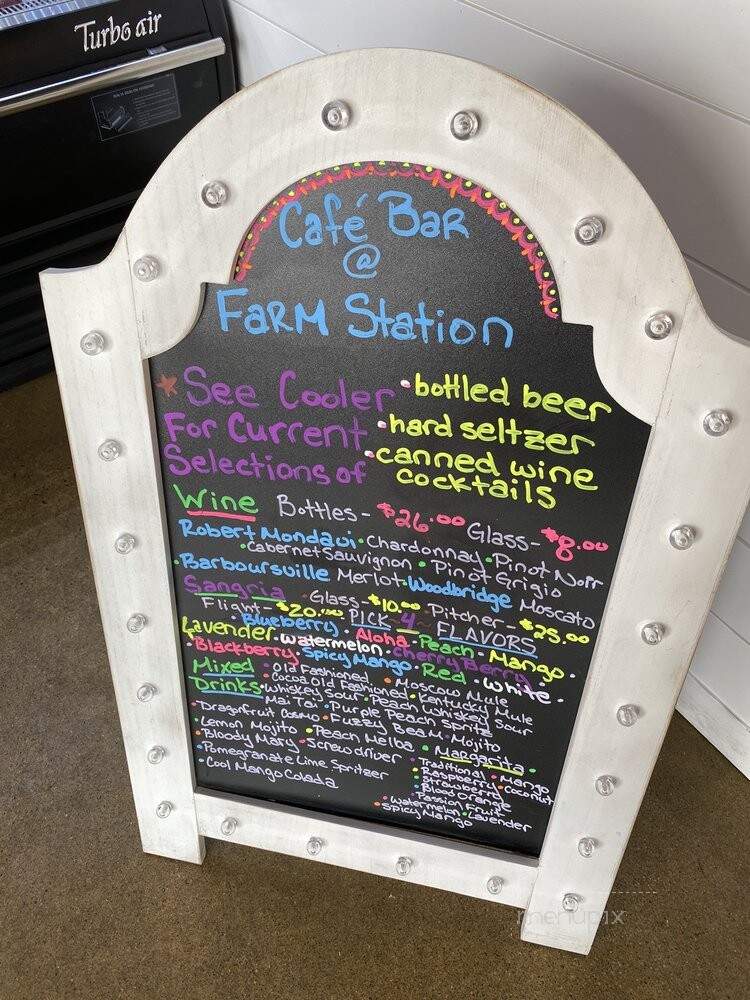 Turbo air
Café Bar
@
FaRM Station
See Cooler
For Current
Selections of
•bottled beer
•hard seltzer
•canned wine
cocktails
Wine Bottles- $26.00 Glass- $8.00
Robert Mondavi •Chardonnay •Pinot Noir
•Cabernet Sauvignon • Pinot Grigio
•Barboursville Merlot •Woodbridge Moscato
Sangria •Glass- $10.00 Pitcher- $25.00
Flight- $20.00 PICK 4 FLAVORS
Lavender •Blueberry • Aloha •Peach • Mango •
•Blackberry •watermelon •cherry Berry •
•Spicy Mango • Red • white •
Mixed
Drinks
•Old Fashioned •Moscow Mule
•Cocoa Old Fashioned •Kentucky Mule
•Whiskey Sour •Peach Whiskey Sour
Mai Tai •Purple Peach Spritz
•Dragonfruit Cosmo •Fuzzy Beam •Mojito
•Lemon Mojito •Peach Melba
•Bloody Mary •Screwdriver
•Pomegranate Lime Spritzer
•Cool Mango Colada
•Margarita•
•Traditional •Mango
•Raspberry •Coconut
•Strawberry
•Blood Orange
•Passion Fruit
•Watermelon •Lavender
•Spicy Mango
menupix